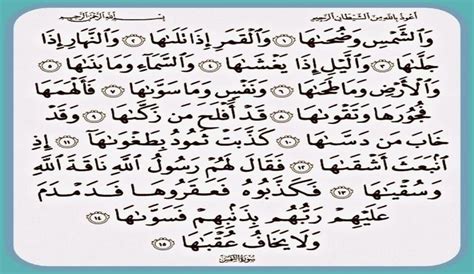 أعوذ بالله من الشيطان الرجيم بسم الله الرحمن الرحيم
وَالشَّمْسِ وَضُحَىٰهَا ١ وَالْقَمَرِ إِذَا تَلَىٰهَا ٢ وَالنَّهَارِ إِذَا
جَلَّىٰهَا ٣ وَالَّيْلِ إِذَا يَغْشَىٰهَا ٤ وَالسَّمَآءِ وَمَا بَنَىٰهَا ٥
وَالْأَرْضِ وَمَا طَحَىٰهَا ٦ وَنَفْسٍ وَمَا سَوَّىٰهَا ٧ فَأَلْهَمَهَا
فُجُورَهَا وَتَقْوَىٰهَا ٨ قَدْ أَفْلَحَ مَن زَكَّىٰهَا ٩ وَقَدْ
خَابَ مَن دَسَّىٰهَا ١٠ كَذَّبَتْ ثَمُودُ بِطَغْوَىٰهَا ١١ إِذِ
انۢبَعَثَ أَشْقَىٰهَا ١٢ فَقَالَ لَهُمْ رَسُولُ اللَّهِ نَاقَةَ اللَّهِ
وَسُقْيَىٰهَا ١٣ فَكَذَّبُوهُ فَعَقَرُوهَا فَدَمْدَمَ
عَلَيْهِمْ رَبُّهُم بِذَنۢبِهِمْ فَسَوَّىٰهَا ١٤
وَلَا يَخَافُ عُقْبَىٰهَا ١٥
سورة الشمس